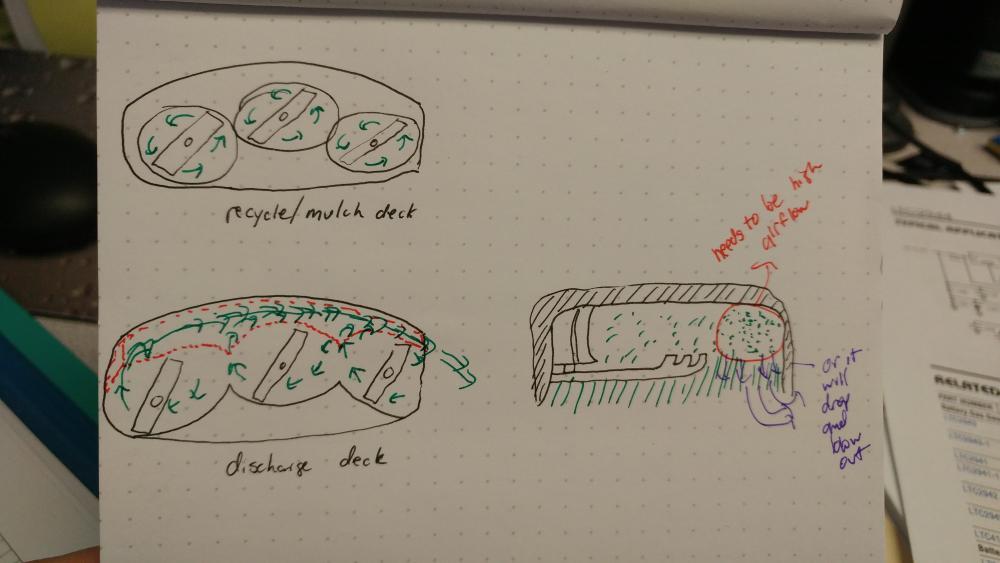 recycle/mulch deck
needs to be high
airflow
or it
will
drop
and
blow
out
discharge deck
RELATED
LTC2941
LTC2942